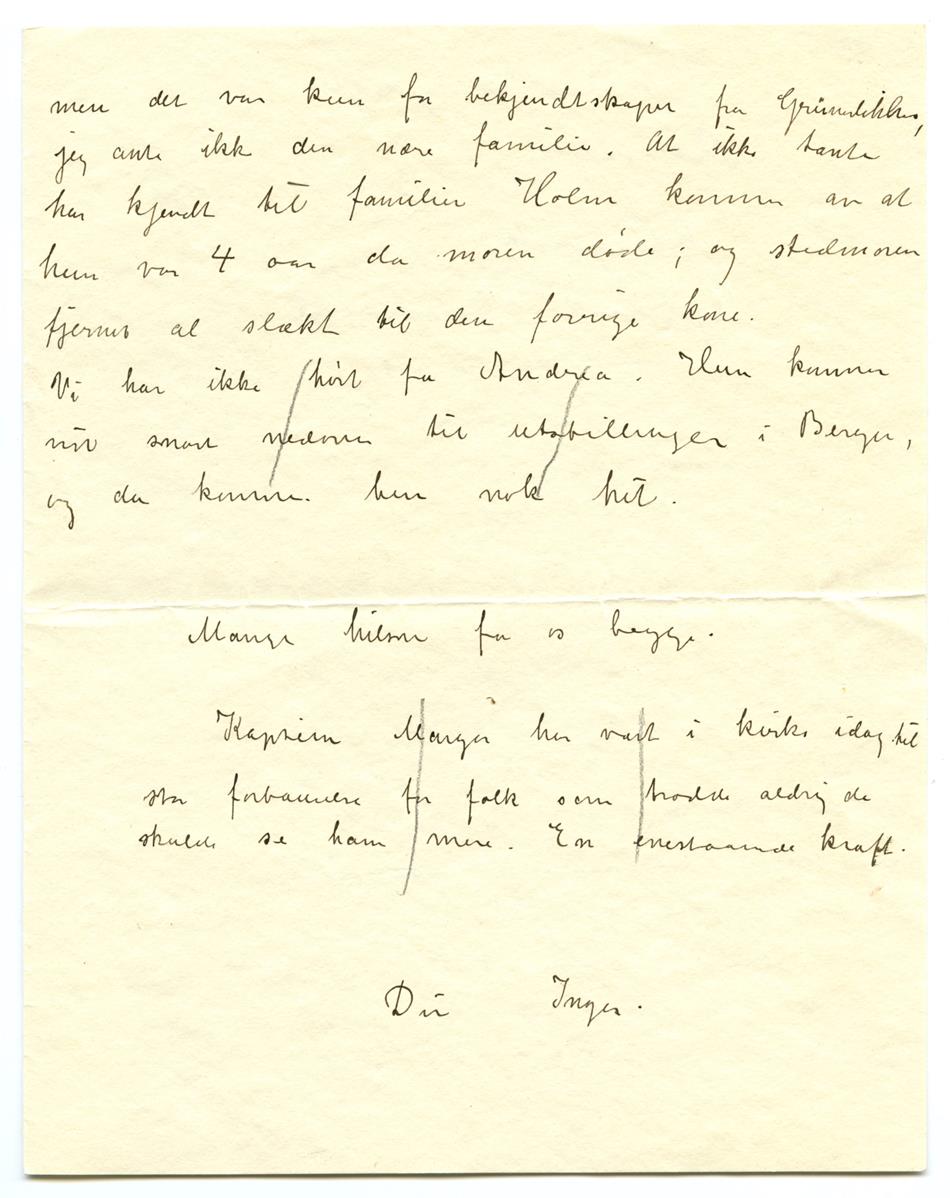 men det var kun for bekjendtskaper fra Grünerløkken,
jeg ante ikke den nære familie. At ikke tante
har kjendt til familien Holm kommer av at
hun var 4 aar da moren døde; og stedmoren
fjernet al slækt til den forrige kone.
Vi har ikke hørt fra Andrea. Hun kommer
nu snart nedover til utstillingen i Bergen,
og da kommer hun nok hit.
Mange hilsen fra os begge.
Kaptein har vært i kirke idag til
stor forbauselse for folk som trodde aldrig de
skulde se ham mere. En enestaaende kraft.
Din Inger.